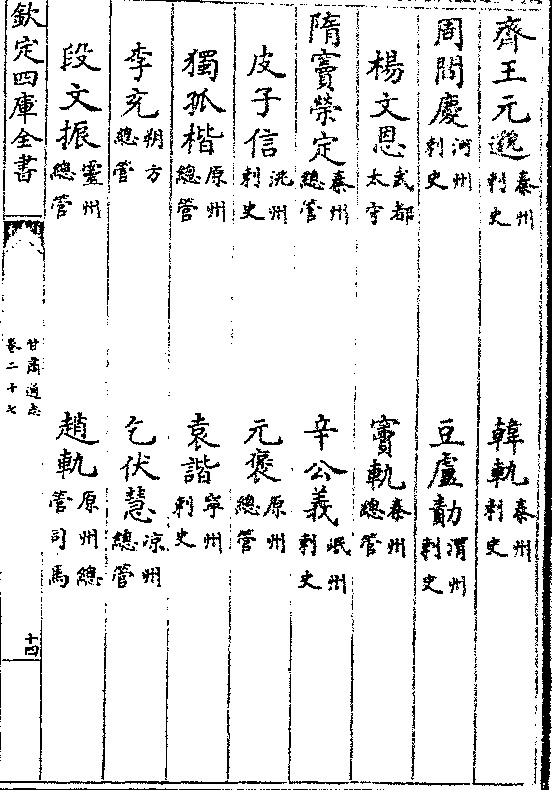 齊王元邈秦州刺史　韓軌秦州刺史
周閻慶河州刺史　豆盧勣渭州刺史
楊文恩武都太守　竇軌秦州總管
隋竇榮定秦州總管　辛公義岷州刺史
皮子信洮州刺史　元褒原州總管
獨孤楷原州總管　袁諧寧州刺史
李充朔方總管　乞伏慧涼州總管
段文振靈州總管　趙軌原州總管司馬
欽定四庫全書
甘肅通志
卷二十七
十四